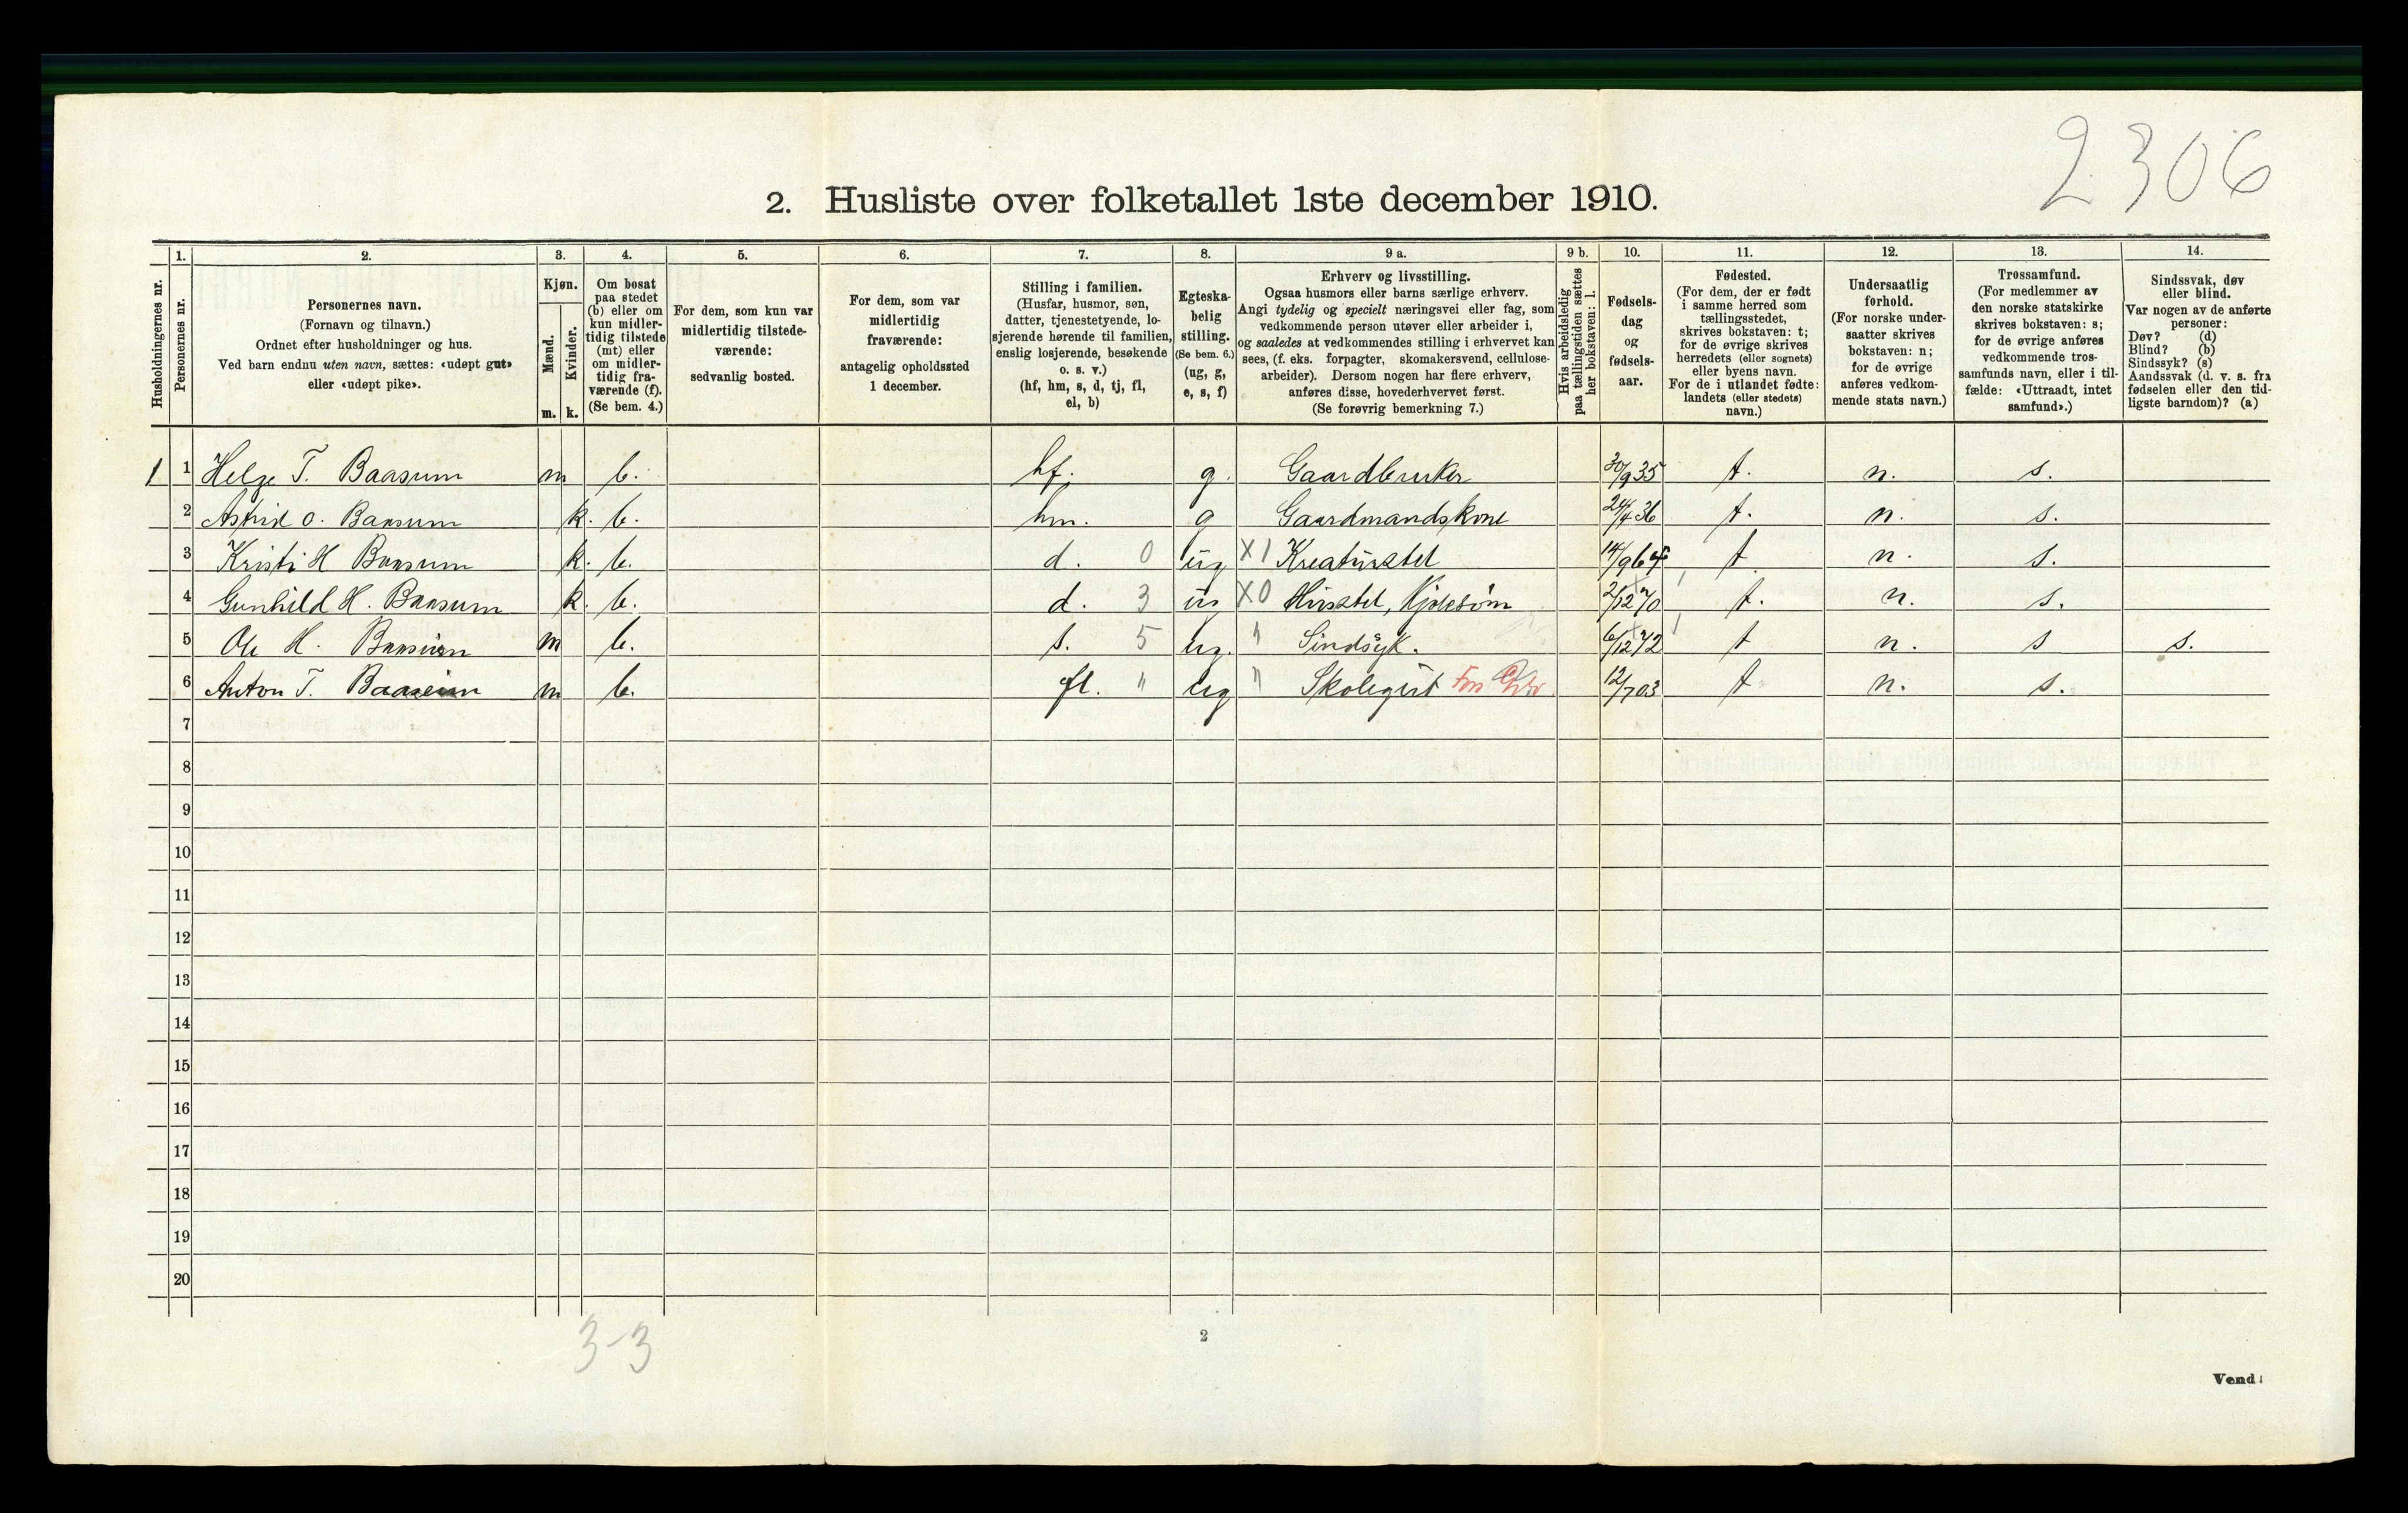 2306
2. Husliste over folketallet 1ste december 1910.
Husholdningernes nr.
1.
Personernes nr.
2.
Personernes navn.
(Fornavn og tilnavn.)
Ordnet efter husholdninger og hus.
Ved barn endnu uten navn, sættes: «udøpt gut»
eller «udøpt pike».
3.
Kjøn.
Mænd.
m.
Kvinder.
k.
4.
Om bosat
paa stedet
(b) eller om
kun midler-
tidig tilstede
(mt) eller
om midler-
tidig fra-
værende (f).
(Se bem. 4.)
5.
For dem, som kun var
midlertidig tilstede-
værende:
sedvanlig bosted.
6.
For dem, som var
midlertidig
fraværende:
antagelig opholdssted
1 december.
7.
Stilling i familien.
(Husfar, husmor, søn,
datter, tjenestetyende, lo-
sjerende hørende til familien,
enslig losjerende, besøkende
o. s. v.)
(hf, hm, s, d, tj, fl,
el, b)
8.
Egteska-
belig
stilling.
(Se bem. 6.)
(ug, g,
e, s, f)
9 a.
Erhverv og livsstilling.
Ogsaa husmors eller barns særlige erhverv.
Angi tydelig og specielt næringsvei eller fag, som
vedkommende person utøver eller arbeider i,
og saaledes at vedkommendes stilling i erhvervet kan
sees, (f. eks. forpagter, skomakersvend, cellulose-
arbeider). Dersom nogen har flere erhverv,
anføres disse, hovederhvervet først.
(Se forøvrig bemerkning 7.)
9 b.
Hvis arbeidsledig
paa tællingstiden sættes
her bokstaven: l.
10.
Fødsels-
dag
og
fødsels-
aar.
11.
Fødested.
(For dem, der er født
i samme herred som
tællingsstedet,
skrives bokstaven: t;
for de øvrige skrives
herredets (eller sognets)
eller byens navn.
For de i utlandet fødte:
landets (eller stedets)
navn.)
12.
Undersaatlig
forhold.
(For norske under-
saatter skrives
bokstaven: n;
for de øvrige
anføres vedkom-
mende stats navn.)
13.
Trossamfund.
(For medlemmer av
den norske statskirke
skrives bokstaven: s;
for de øvrige anføres
vedkommende tros-
samfunds navn, eller i til-
fælde: «Uttraadt, intet
samfund».)
14.
Sindssvak, døv
eller blind.
Var nogen av de anførte
personer:
Døv? (d)
Blind? (b)
Sindssyk? (s)
Aandssvak (d. v. s. fra
fødselen eller den tid-
ligste barndom)? (a)
1 1 Helge T. Baasum m b. hf. g. Gaardbruker 30/9 35 t. n. s.
2 Astrid O. Baasum k. b. hm. g Gaardmandskone 24/4 36 t. n. s.
3 Kristi H Baasum k. b. d. 0 ug X1 Kreaturstel 14/9 64 t n. s.
4 Gunhild H. Baasum k. b. d. 3 ug X0 Husstel, Kjolesøm 2/12 70 t. n. s.
5 Ole H. Baasum m b. s. 5 ug. " Sindsyk. 6/12 72 t n. s s.
6 Anton T. Baasum m b. fl. " ug " Skolegut 12/7 03 t n. s.
7
8
9
10
11
12
13
14
15
16
17
18
19
20
3-3
2
Vend!